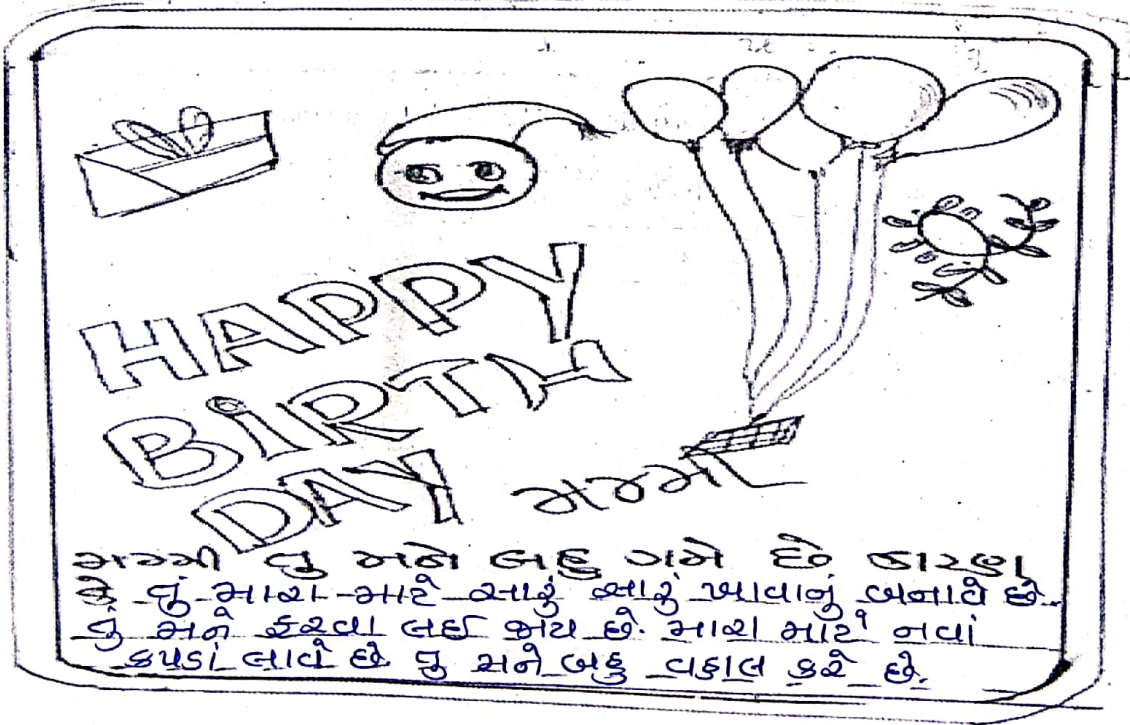 HAPPY
BiRTH
DAY મમ્મી
મમ્મી તુ મને બહુ ગમે છે કારણ
કે તું મારા માટે સારું સારું ખાવાનું બનાવે છે.
તું મને ફરવા લઈ જાય છે. મારા માટે નવાં
કપડાં લાવે છે તુ મને બહુ વહાલ કરે છે.